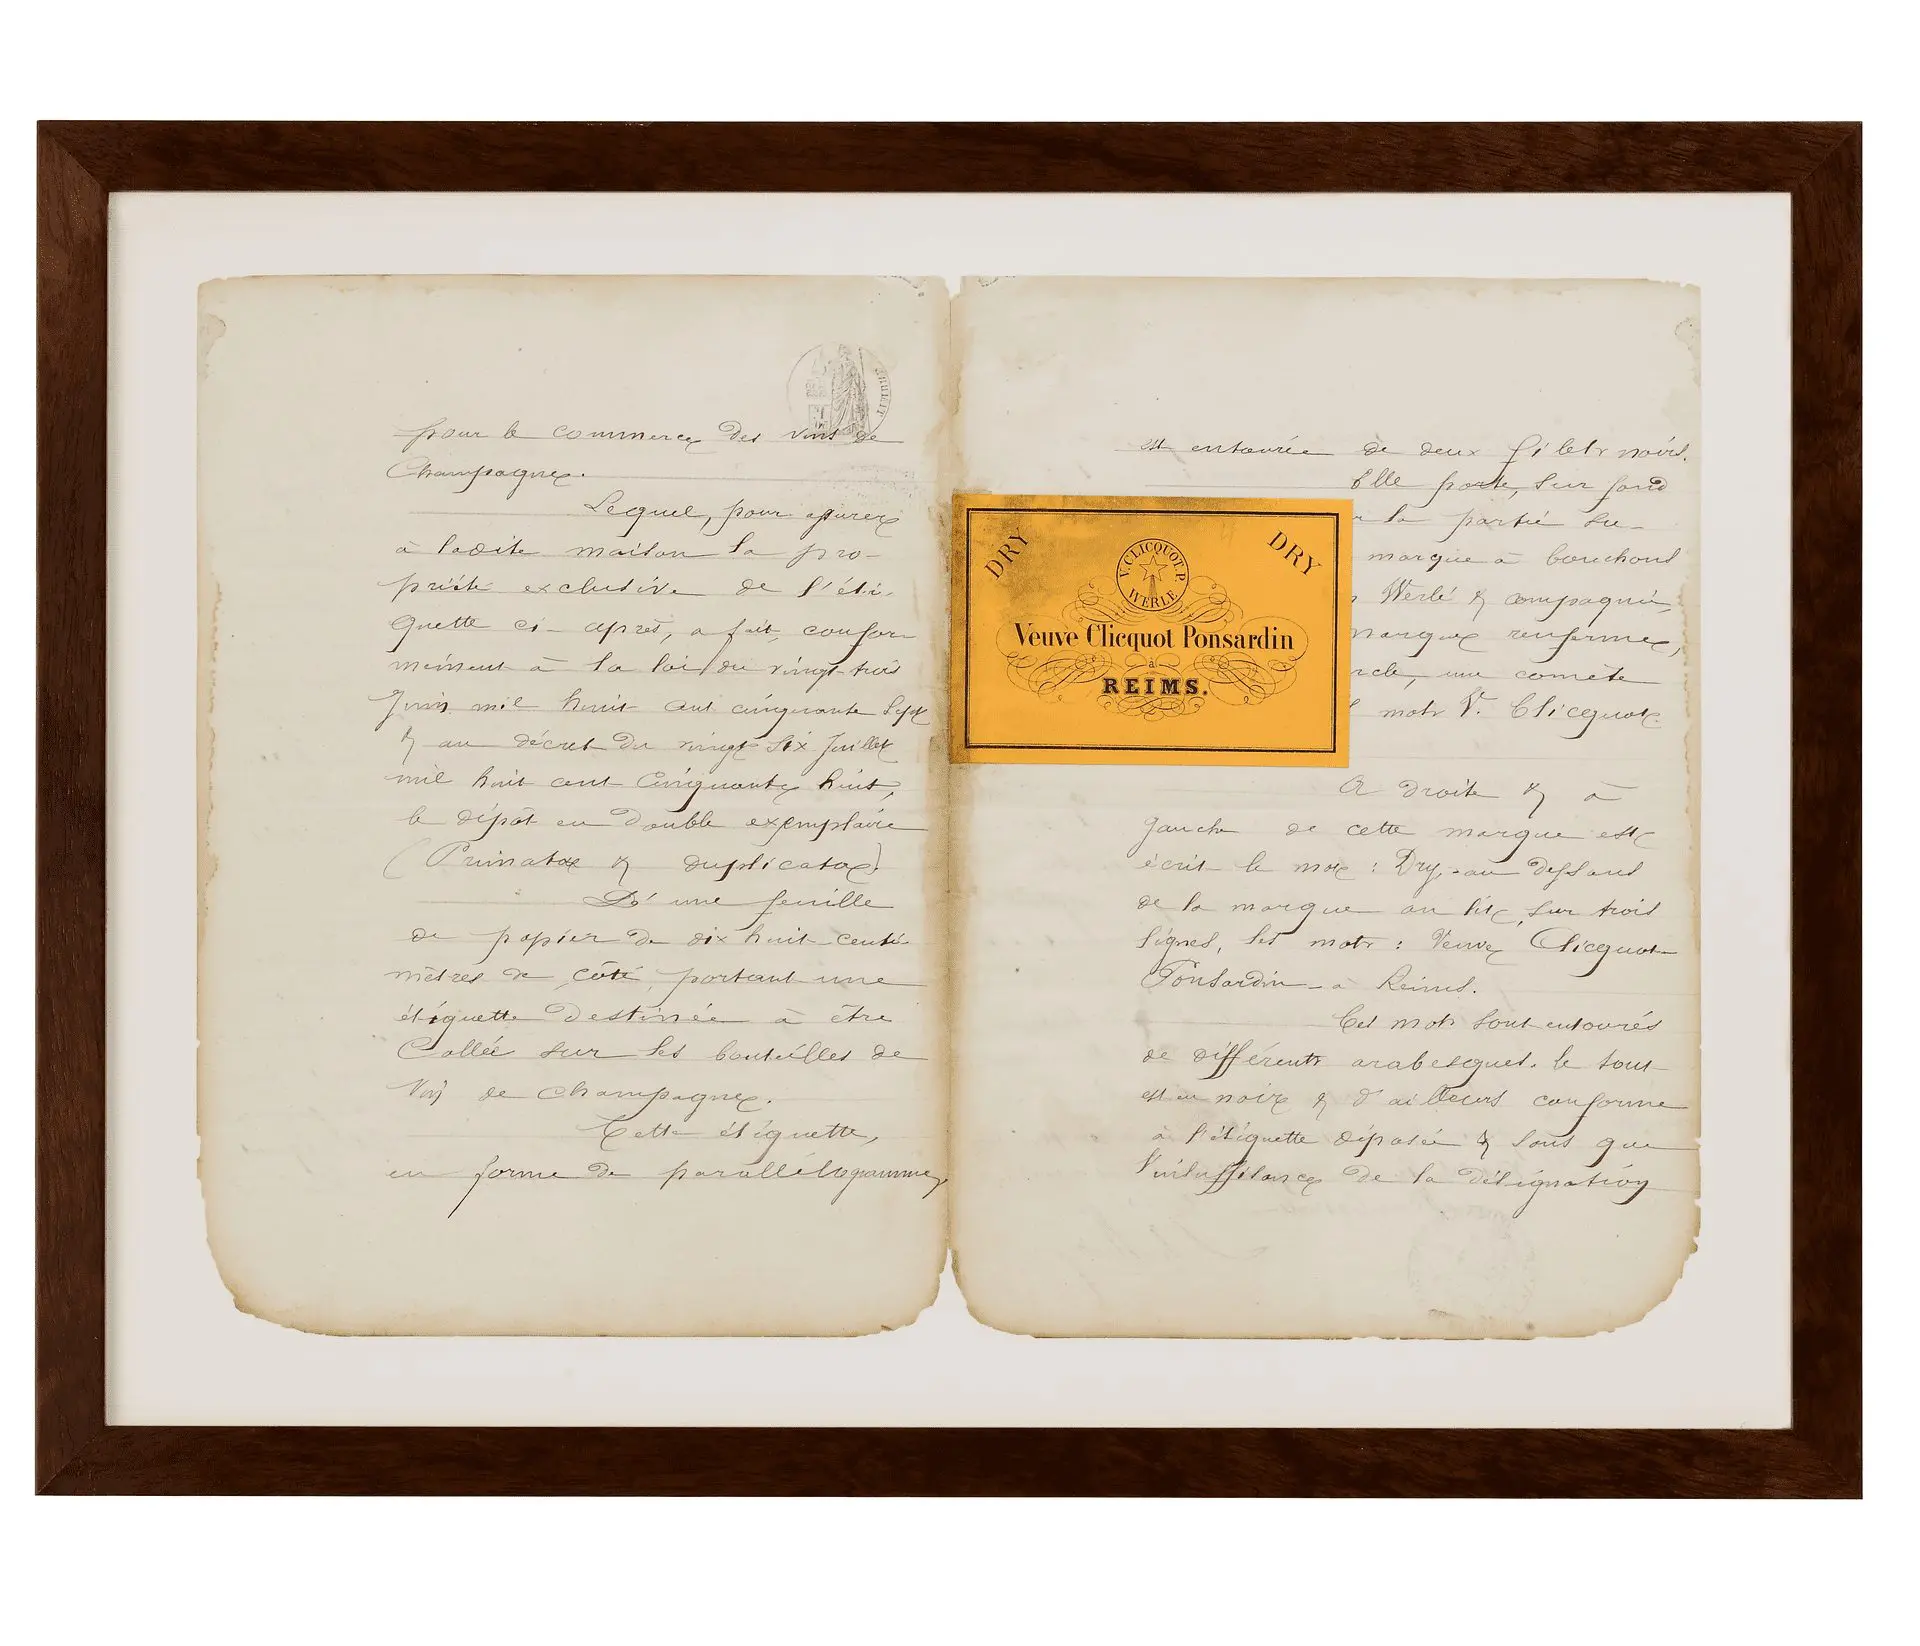 pour le commerce des vins de
Champagne.
Lequel, pour assurer
à ladite maison la pro-
priété exclusive de l'éti-
quette ci-après, a fait, confor-
mément à la loi du vingt-trois
Juin mil huit cent cinquante Sept
& au décret du vingt six Juillet
mil huit cent cinquante huit,
le dépôt en double exemplaire
(Primata & duplicata)
D'une feuille
de papier de dix huit centi-
mètres de côté, portant une
étiquette destinée à être
Collée sur les bouteilles de
Vin de Champagne.
Cette étiquette,
en forme de parallélogramme,
est entourée de deux filets noirs.
Elle porte, sur fond
la partie su-
marque à bouchons
Werlé & compagnie,
marque renferme,
une comète
mots V. Clicquot
DRY
DRY
V. CLICQUOT. P.
WERLE
Veuve Clicquot Ponsardin
à
REIMS.
A droite & à
gauche de cette marque est
écrit le mot : Dry, au dessous
de la marque on lit, sur trois
lignes, les mots : Veuve Clicquot
Ponsardin à Reims.
Ces mots sont entourés
de différents arabesques. le tout
est en noir & d'ailleurs conforme
à l'étiquette déposée & sans que
l'insuffisance de la désignation